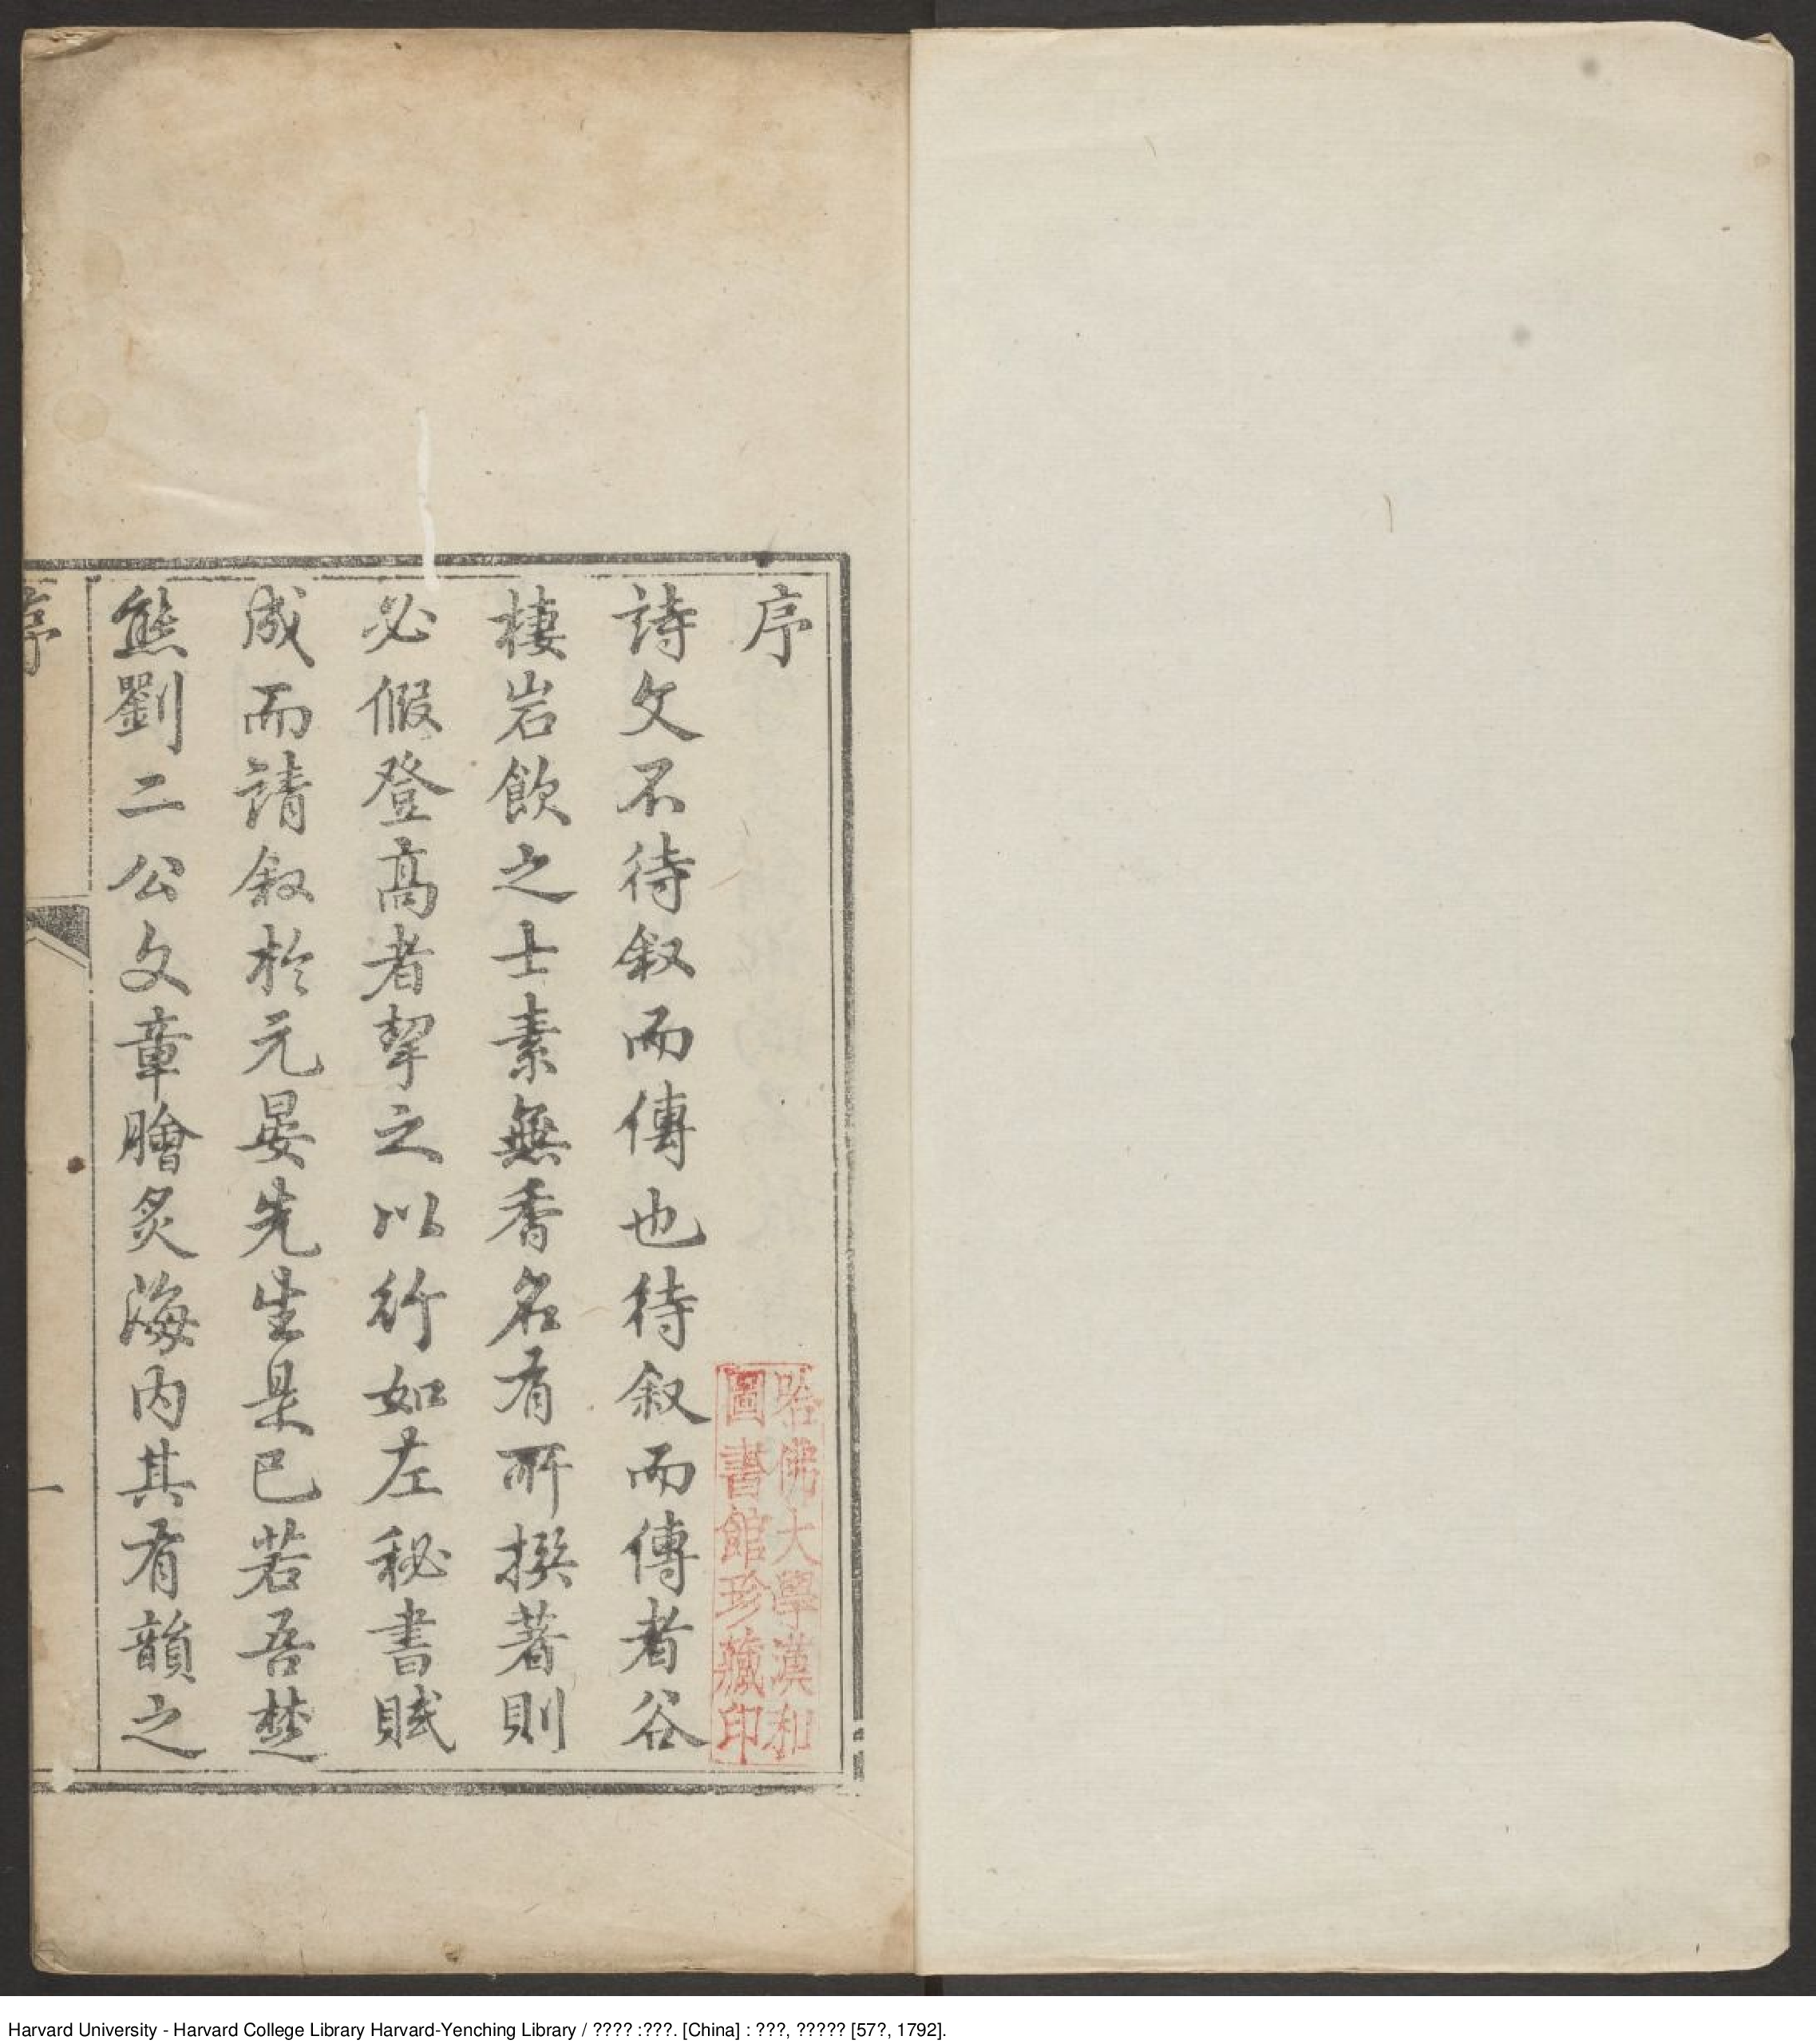 序
詩文不待叙而傳也待叙而傳者谷
棲岩飲之士素無香名有所撰著則
必假登高者挈之以行如左秘書賦
成而請叙於元晏先生是已若吾楚
熊劉二公文章膾炙海内其有韻之
序
一
哈佛大學漢和
圖書館珍藏印
Harvard University - Harvard College Library Harvard-Yenching Library / ???? :???. [China] : ???, ????? [57?, 1792].